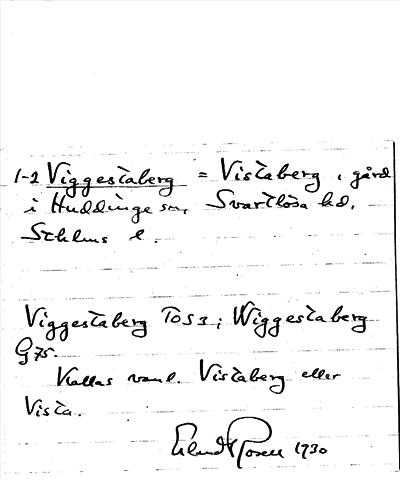 1-2 Viggestaberg = Vistaberg, gård
i Huddinge sn, Svartlösa hd,
Sthlms l.
Viggestaberg TOS 3; Wiggestaberg
G 75.
Kallas vanl. Vistaberg eller
Vista.
Erland Rosell 1930